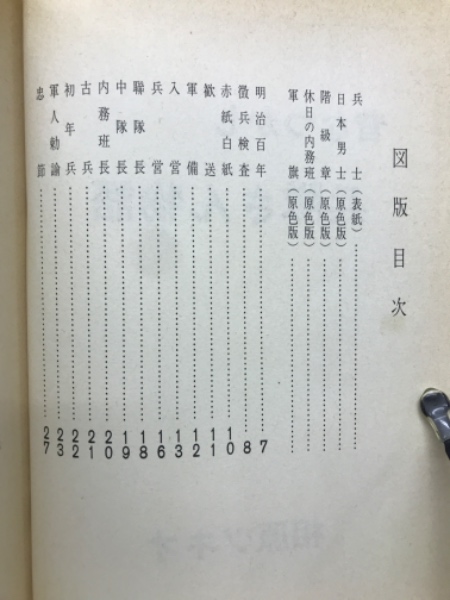 図版目次
兵士(表紙)
日本男士(原色版)
階級章(原色版)
休日の内務班(原色版)
軍旗(原色版)
明治百年 7
徴兵検査 8
赤紙白紙 10
歓送 11
軍備 12
入営 13
兵営 16
聯隊長 18
中隊長 19
内務班長 20
古兵 21
初年兵 22
軍人勅諭 23
忠節 27